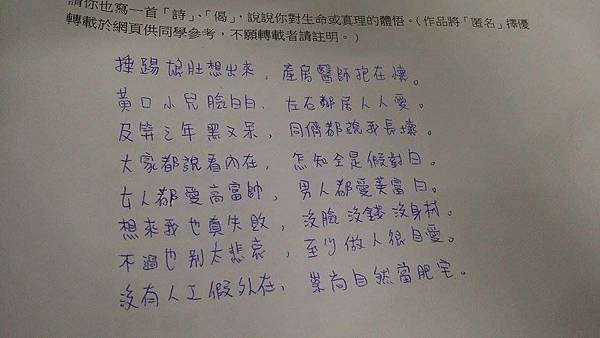 請你也寫一首「詩」、「偈」，說說你對生命或真理的體悟。（作品將「匿名」擇優
轉載於網頁供同學參考，不願轉載者請註明。）
捶踢娘肚想出來，產房醫師抱在懷。
黃口小兒臉白白，左右鄰居人人愛。
及笄之年黑又呆，同儕都說我長壞。
大家都說看內在，怎知全是假對白。
女人都愛高富帥，男人都愛美富白。
想來我也真失敗，沒臉沒錢沒身材。
不過也別太悲哀，至少做人很自愛。
沒有人工假外在，崇尚自然當肥宅。